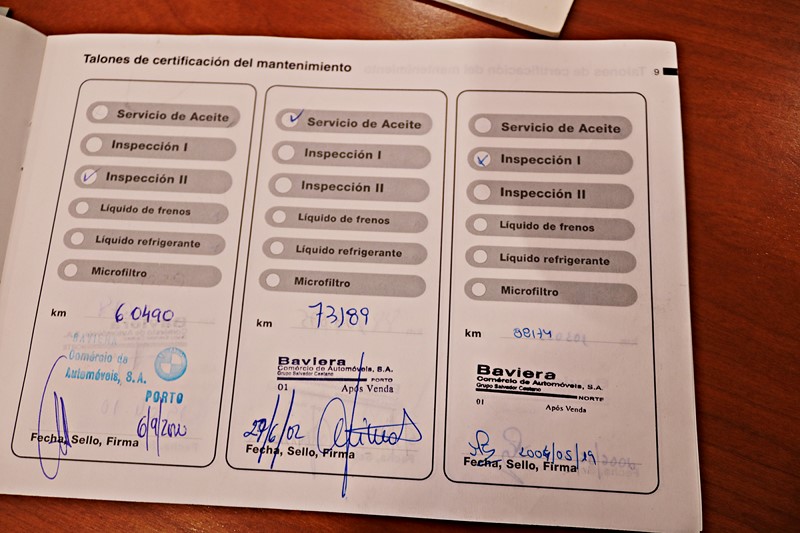 Talones de certificación del mantenimiento
9
Servicio de Aceite
Inspección I
Inspección II
Líquido de frenos
Líquido refrigerante
Microfiltro
km 60490
Comércio de
Automóveis, S.A.
PORTO
6/9/2000
Fecha, Sello, Firma
Servicio de Aceite
Inspección I
Inspección II
Líquido de frenos
Líquido refrigerante
Microfiltro
km 73189
Baviera
Comércio de Automóveis, S.A.
Grupo Salvador Caetano
PORTO
01 Após Venda
27/6/02
Fecha, Sello, Firma
Servicio de Aceite
Inspección I
Inspección II
Líquido de frenos
Líquido refrigerante
Microfiltro
km
Baviera
Comércio de Automóveis, S.A.
Grupo Salvador Caetano
NORTE
01 Após Venda
2004/05/19
Fecha, Sello, Firma